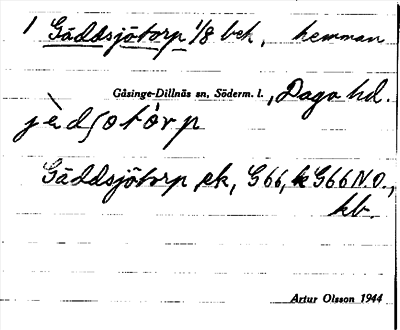 1 Gäddsjötorp 1/8 bek, hemman
Gåsinge-Dillnäs sn, Söderm. l., Daga hd.
jèdʃotórp
Gäddsjötorp, ek, G66, k G66 N.O.,
kb.
Artur Olsson 1944